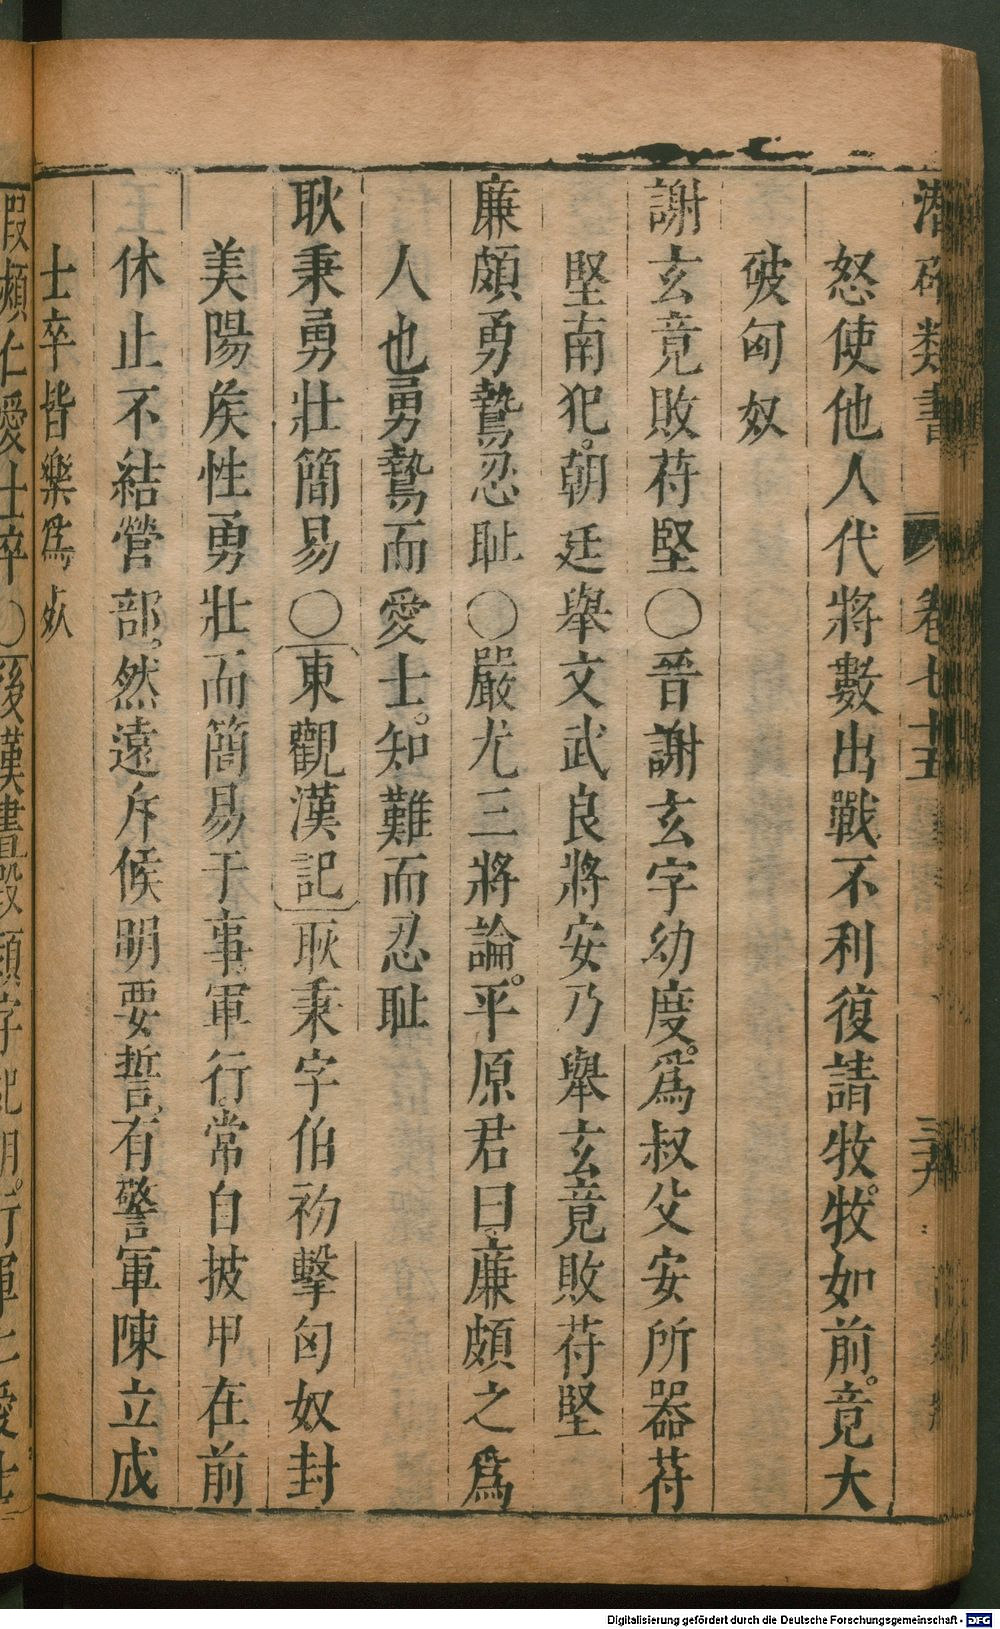 潛確類書 卷七十五 三十九
怒使他人代將數出戰不利復請牧。牧如前。竟大
破匈奴
謝玄竟敗苻堅〇晉謝玄字幼度。爲叔父安所器苻
堅南犯。朝廷舉文武良將安乃舉玄竟敗苻堅
廉頗勇鷙忍耻〇嚴尤三將論。平原君曰廉頗之爲
人也勇鷙而愛士。知難而忍耻
耿秉勇壯簡易〇東觀漢記耿秉字伯初擊匈奴封
美陽矦性勇壯而簡易于事軍行。常自披甲在前
休止不結營部。然遠斥候明要誓。有警軍陳立成
士卒皆樂爲死
段熲仁愛士卒〇後漢書段熲字紀明。行軍仁愛士
Digitalisierung gefördert durch die Deutsche Forschungsgemeinschaft - DFG